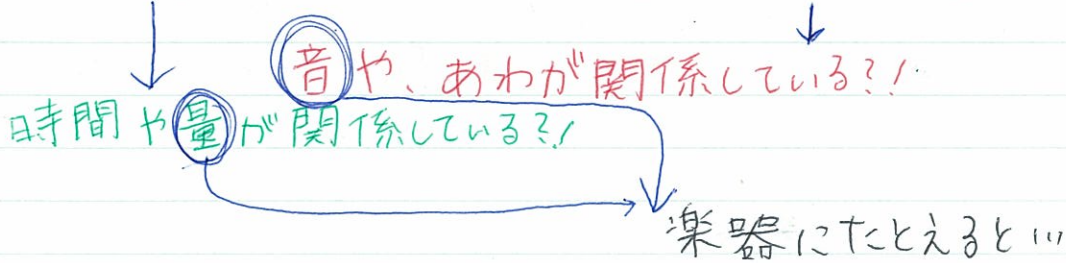 音や、あわが関係している?!
時間や量が関係している?!
楽器にたとえると…